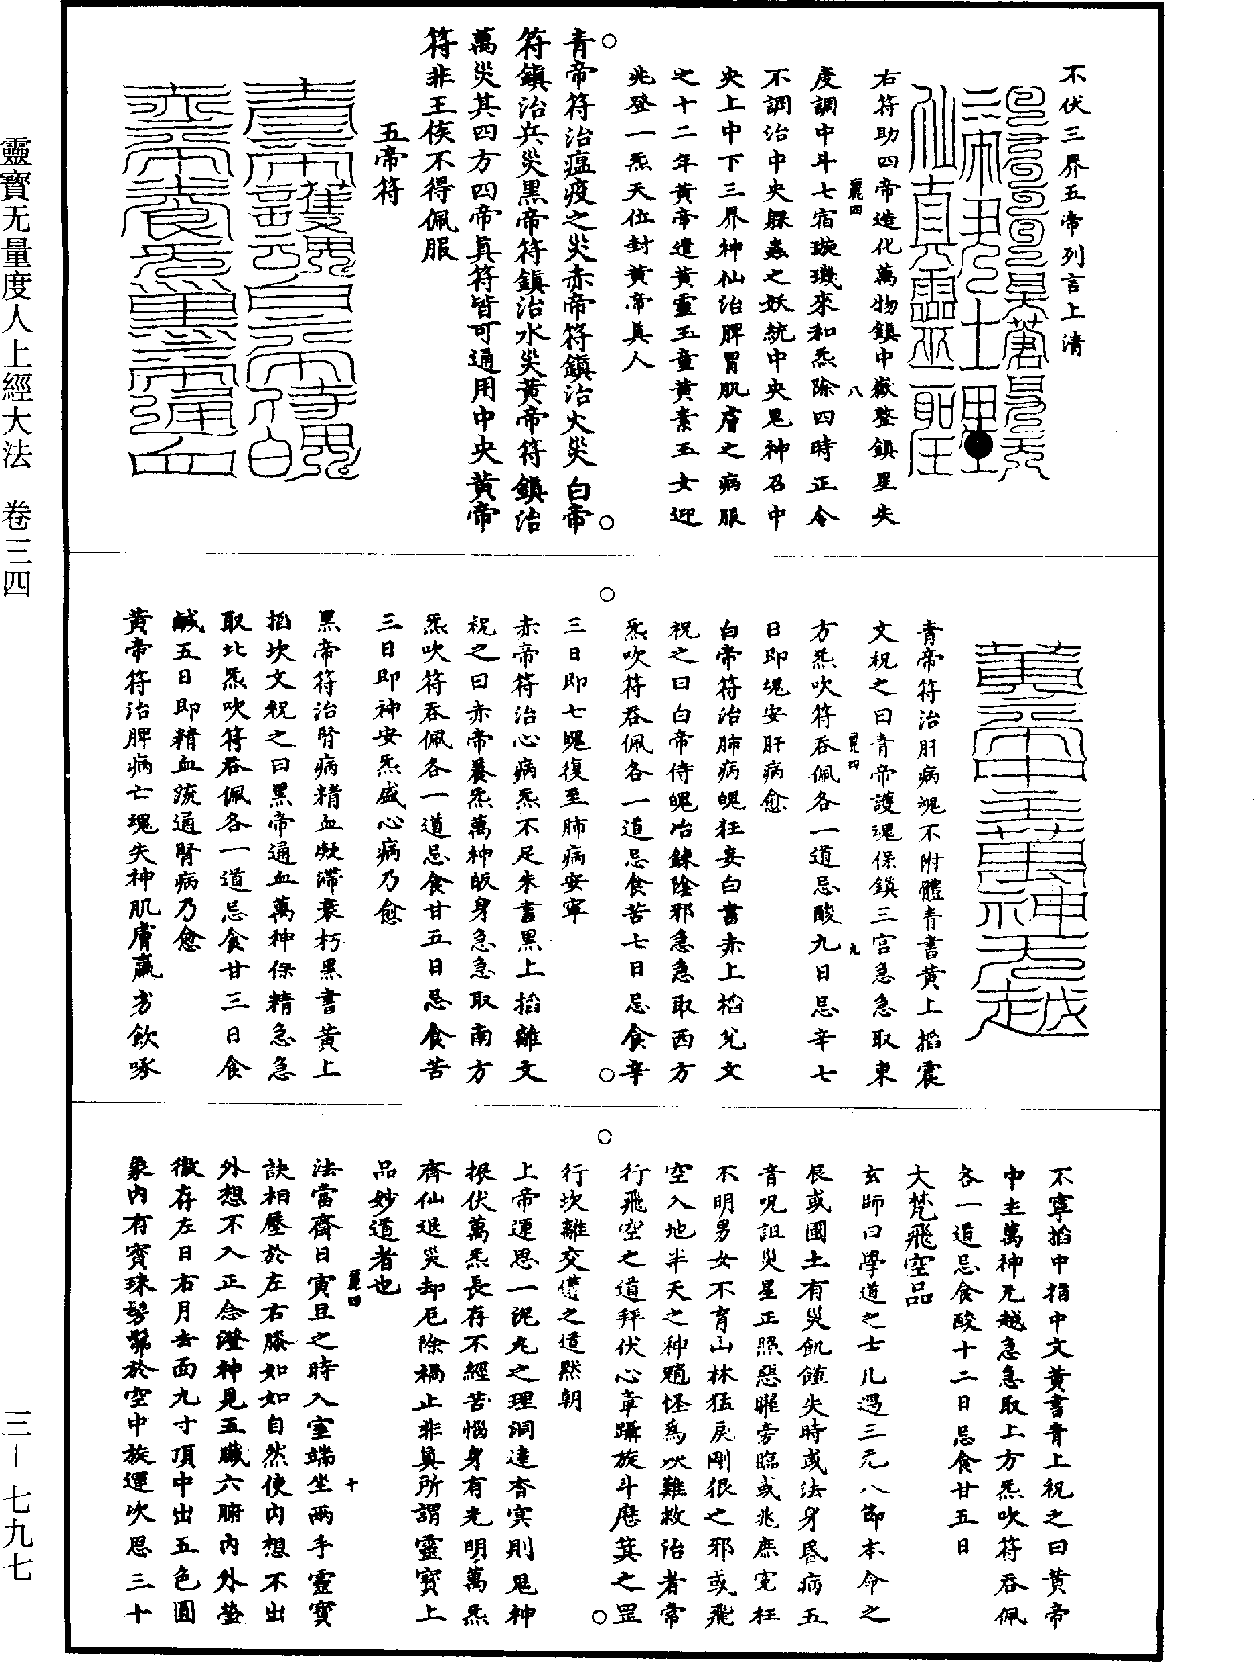 不伏三界五帝列言上清
右符助四帝造化萬物鎮中嶽整鎮星失
度調中斗七宿璇璣來和炁除四時正令
不調治中央倮蟲之妖統中央鬼神召中
央上中下三界神仙治脾胃肌膚之病服
之十二年黃帝遣黃靈玉童黃素玉女迎
兆登一炁天位封黃帝真人
青帝符治瘟疫之災赤帝符鎮治火災白帝
符鎮治兵災黑帝符鎮治水災黃帝符鎮治
萬災其四方四帝真符皆可通用中央黃帝
符非王侯不得佩服
五帝符
青帝護魂白帝侍魄
赤帝養炁黑帝通血
黃帝中主萬神无越
青帝符治肝病魂不附體青書黃上掐震
文祝之曰青帝護魂保鎮三宮急急取東
方炁吹符吞佩各一道忌酸九日忌辛七
日即魂安肝病愈
白帝符治肺病魄狂妄白書赤上掐兌文
祝之曰白帝侍魄冶鍊陰邪急急取西方
炁吹符吞佩各一道忌食苦七日忌食辛
三日即七魄復至肺病安寧
赤帝符治心病炁不足朱書黑上掐離文
祝之曰赤帝養炁萬神皈身急急取南方
炁吹符吞佩各一道忌食甘五日忌食苦
三日即神安炁盛心病乃愈
黑帝符治腎病精血凝滯衰朽黑書黃上
掐坎文祝之曰黑帝通血萬神保精急急
取北炁吹符吞佩各一道忌食甘三日食
鹹五日即精血流通腎病乃愈
黃帝符治脾病亡魂失神肌膚羸劣飲啄
不寧掐中指中文黃書青上祝之曰黃帝
中主萬神无越急急取上方炁吹符吞佩
各一道忌食酸十二日忌食甘五日
大梵飛空品
玄師曰學道之士凡遇三元八節本命之
辰或國土有災飢饉失時或法身昏病五
音呪詛災星正照惡曜旁臨或兆庶寃枉
不明男女不育山林猛戾剛狠之邪或飛
空入地半天之神魈怪為吹難救治者常
行飛空之道拜伏心章躡旋斗歷箕之罡
行坎離交遘之道默朝
上帝運思一混九之理洞達杳冥則鬼神
振伏萬炁長存不經苦惱身有光明萬炁
齊仙退災却厄除禍止非真所謂靈寶上
品妙道者也
法當齋日寅旦之時入室端坐兩手靈寶
訣相壓於左右膝如如自然使內想不出
外想不入正念澄神見五臟六腑內外瑩
徹存左日右月去面九寸頂中出五色圓
象內有寶珠髣髴於空中旋運吹思三十
靈寶无量度人上經大法　卷三四
三－七九七